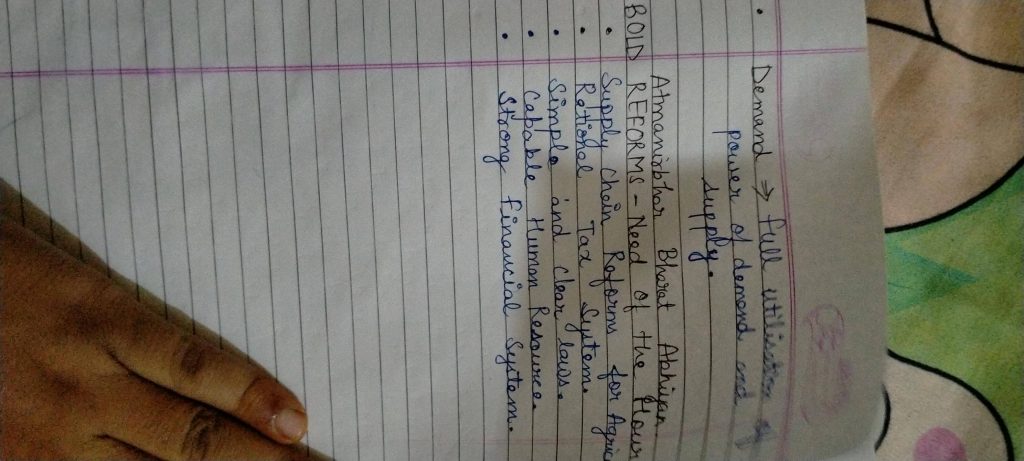 • Demand → full utilisation of
power of demand and
supply.
Atmanirbhar Bharat Abhiyan
BOLD REFORMS - Need of the Hour
• Supply Chain Reform for Agric
• Rational Tax System.
• Simple and Clear laws.
• Capable Human Resource.
• Strong Financial System.